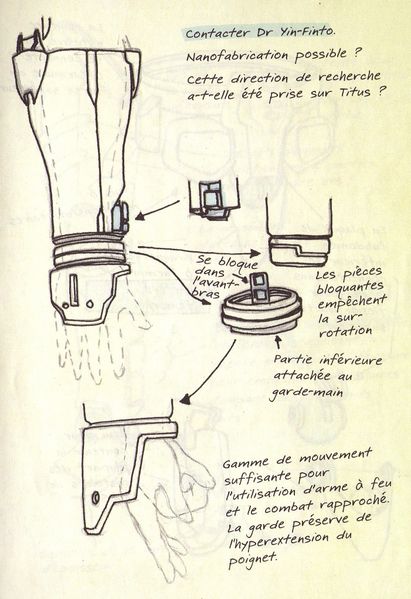 Contacter Dr Yin-Finto.
Nanofabrication possible ?
Cette direction de recherche
a-t-elle été prise sur Titus ?
Se bloque
dans
l'avant-
bras
Les pièces
bloquantes
empêchent
la sur-
rotation
Partie inférieure
attachée au
garde-main
Gamme de mouvement
suffisante pour
l'utilisation d'arme à feu
et le combat rapproché.
La garde préserve de
l'hyperextension du
poignet.